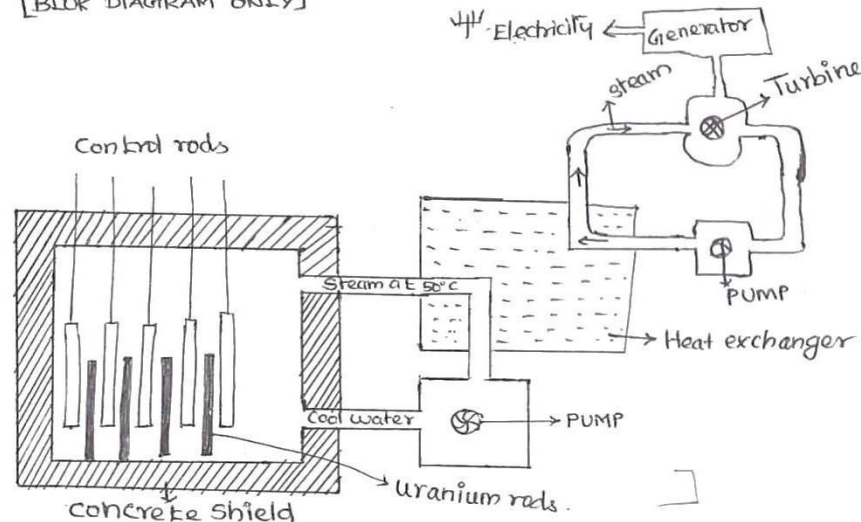 [BLOK DIAGRAM ONLY]
Electricity
Generator
steam
Turbine
Control rods
Steam at 50°C
PUMP
Heat exchanger
Cool water
PUMP
Uranium rods.
Concrete Shield